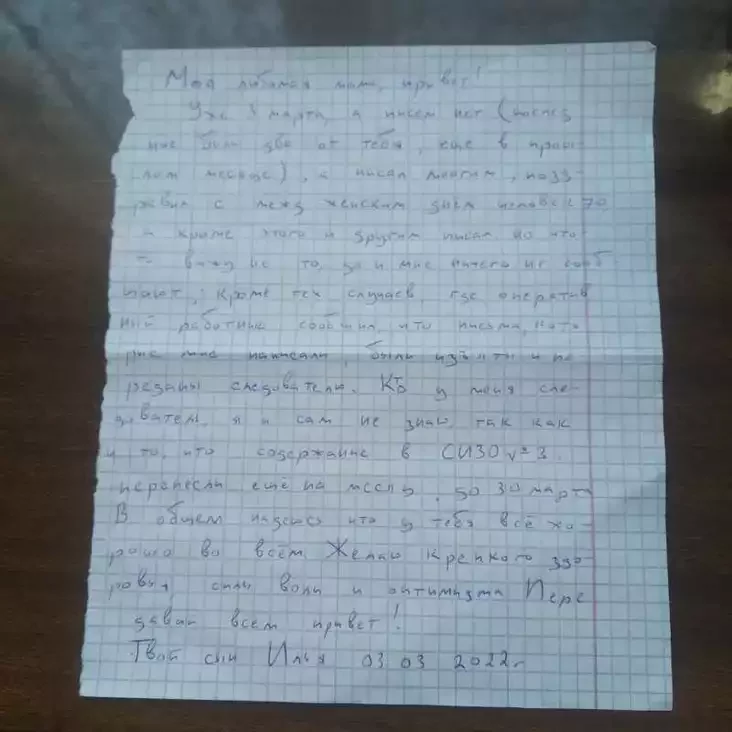 Моя любимая мама, привет!
Уже 3 марта, а писем нет (послед
ние были два от тебя, еще в прош
лом месяце), а писал многим, позд
равил с межд женским днём человек 70
и кроме этого и другим писал. но что
то вижу не то, да и мне ничего не сооб
щают, кроме тех случаев, где оператив
ный работник сообщил, что письма, кото
рые мне написали, были изъяты и пе
реданы следователю. Кто у меня сле-
дователь, я и сам не знаю, так как
и то, что содержание в СИЗО №3
перенесли ещё на месяц, до 30 марта
В общем надеюсь что у тебя всё хо-
рошо во всём Желаю крепкого здо-
ровья, силы воли и оптимизма Пере
давай всем привет!
Твой сын Илья 03 03 2022г